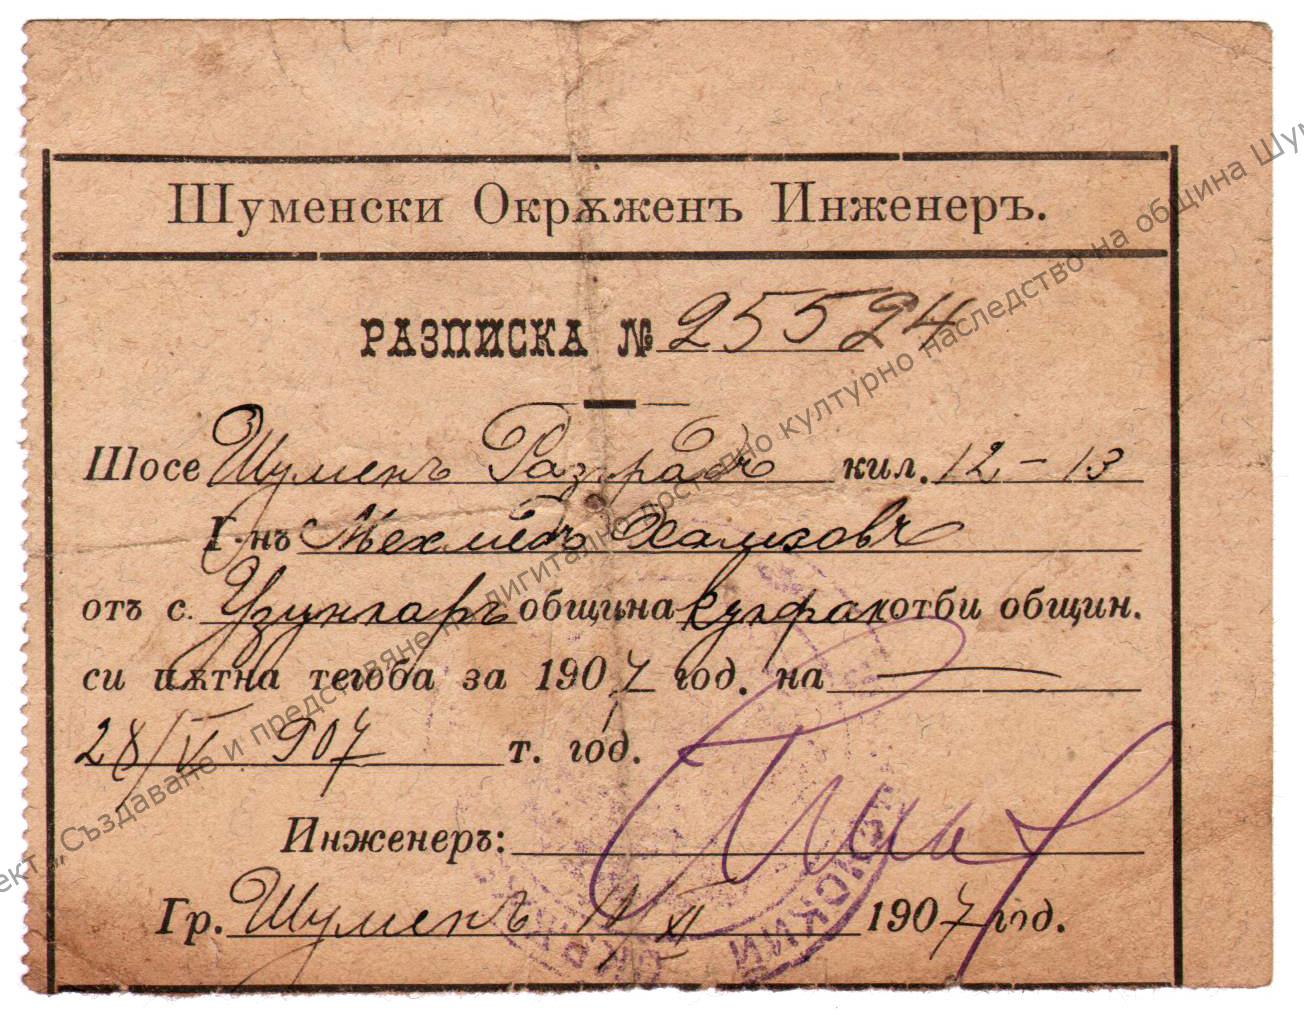 Шуменски Окрѫженъ Инженеръ.
РАЗПИСКА № 25524
Шосе Шуменъ Разградъ кил. 12-13
Г-нъ Мехмедъ Хамзовъ
отъ с. Узунларъ община отби общин.
си пѫтна тегоба за 1907 год. на —
28/V 907 т. год.
Инженеръ:
Гр. Шуменъ 11/XI 1907 год.
ект „Създаване и представяне на дигитално достъпно културно наследство на община Шум